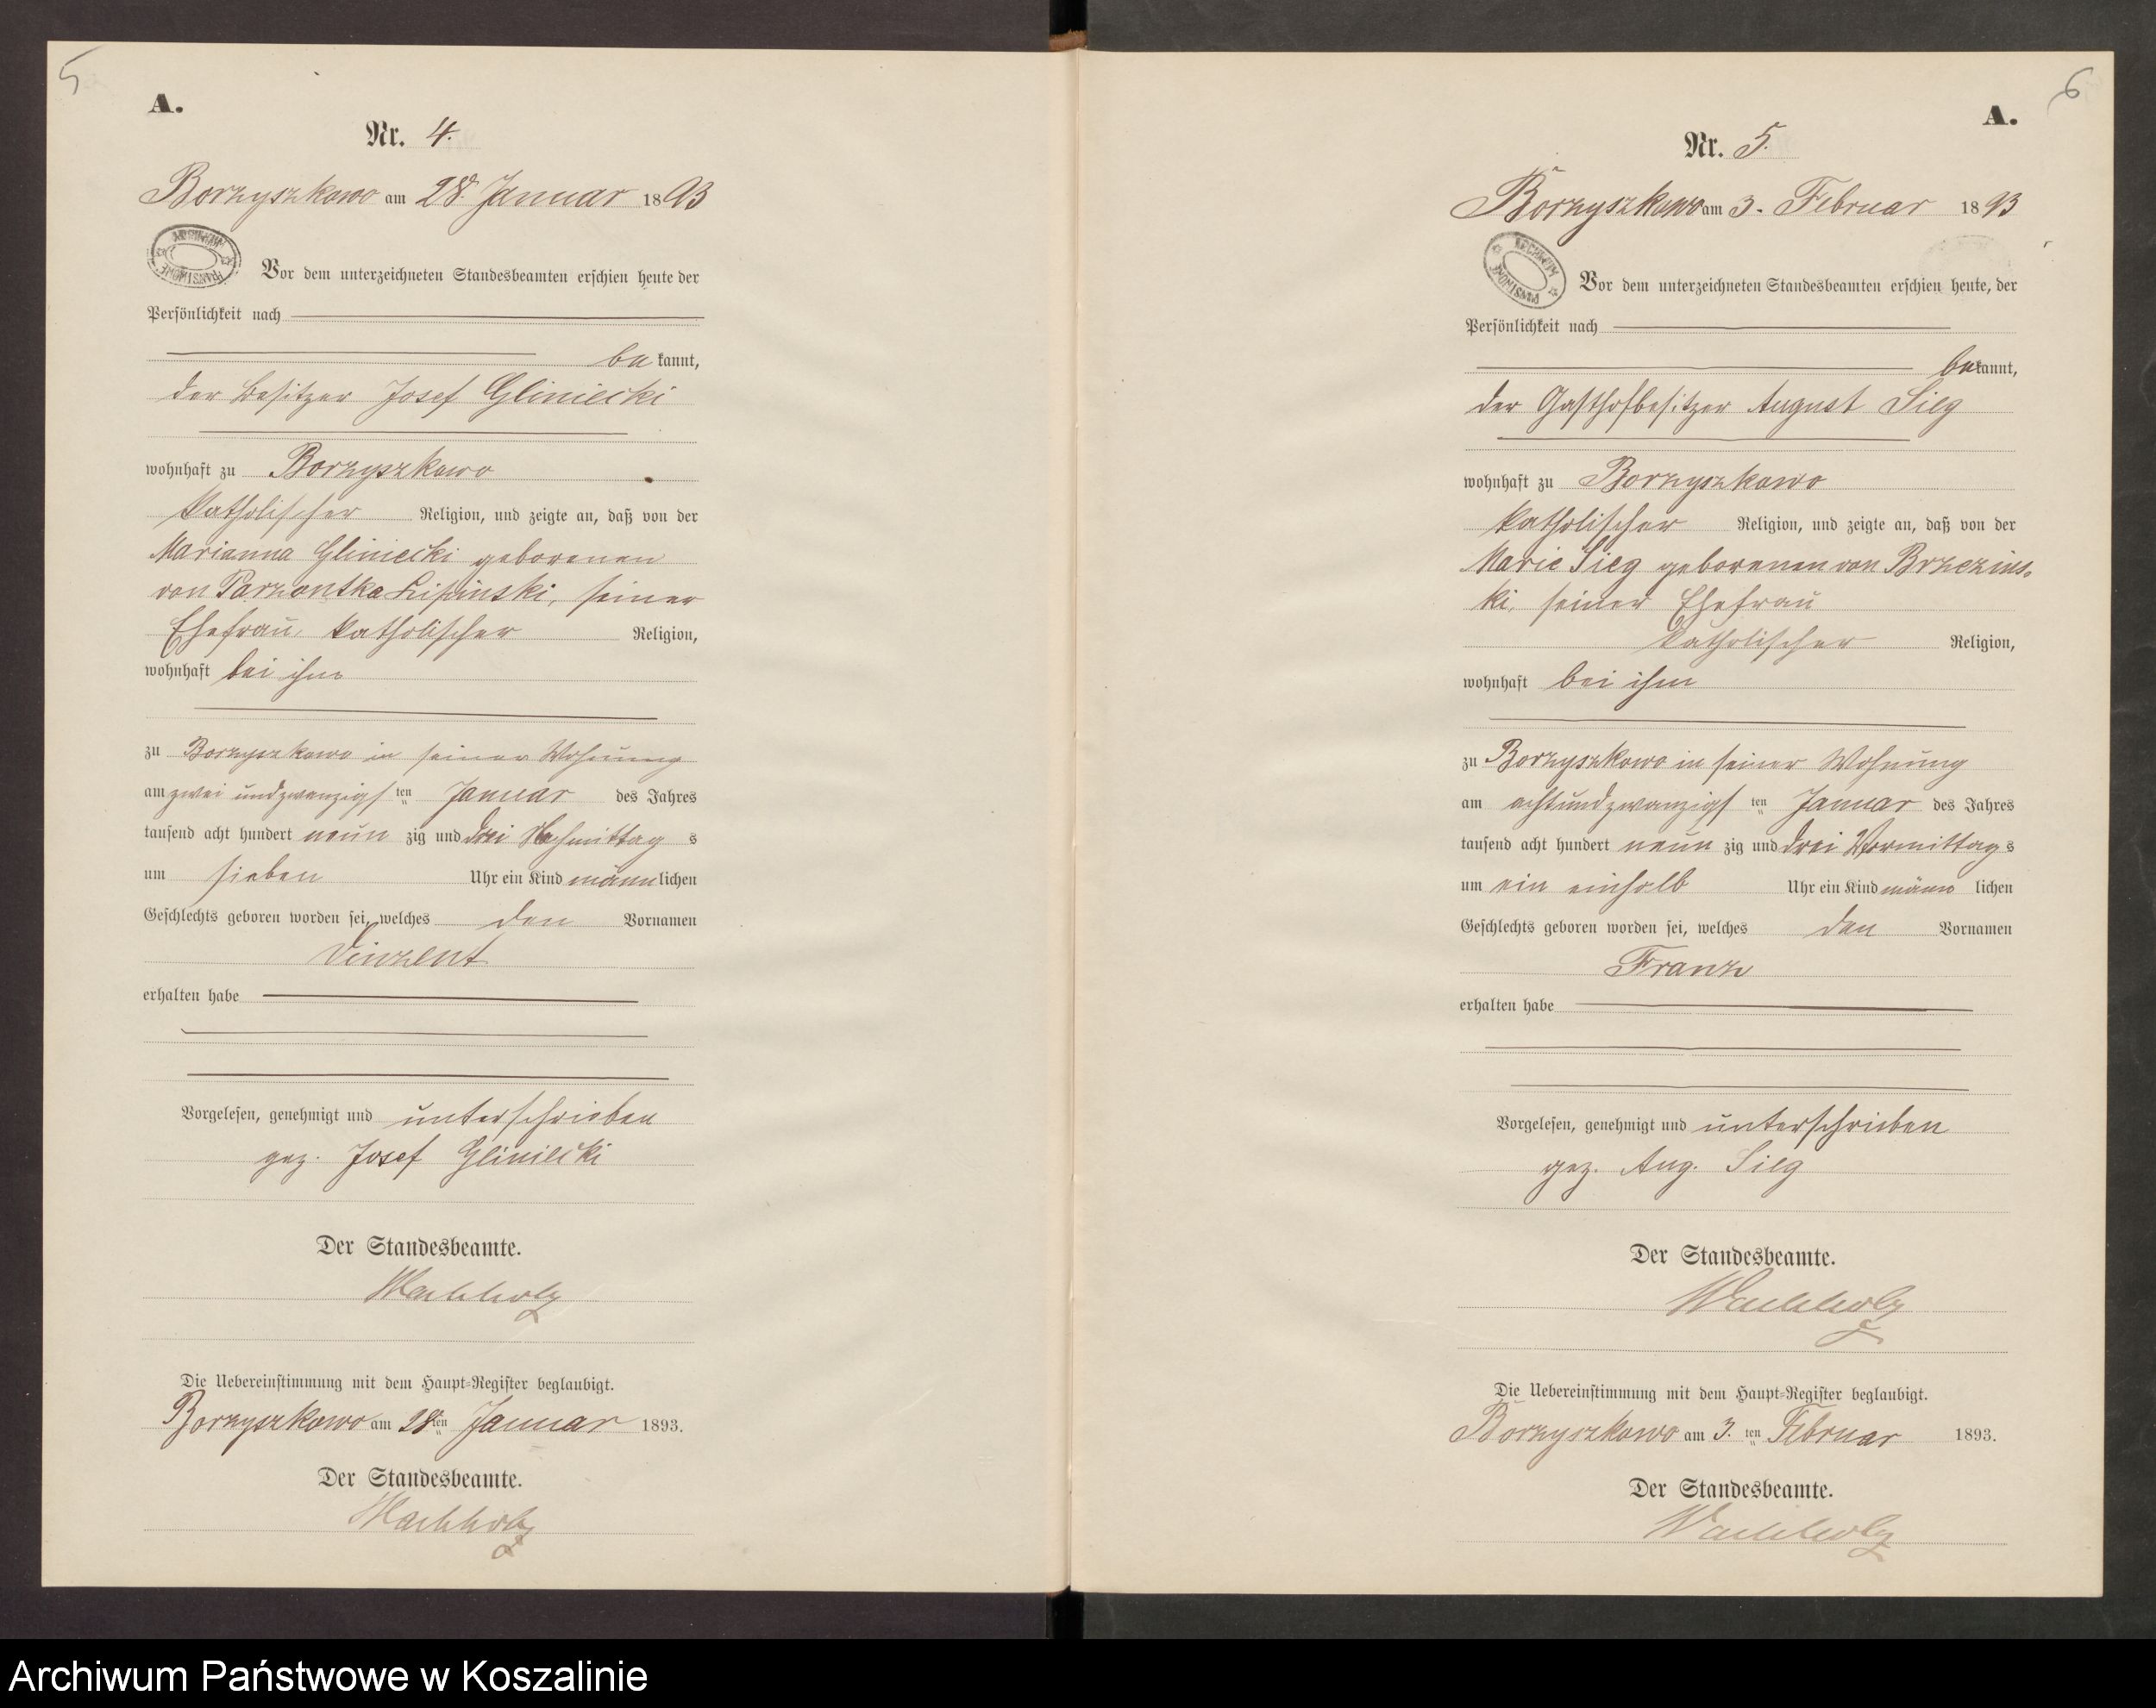 5
A.
Nr. 4.
Borzyszkowo am 28. Januar 1893
ARCHIWUM PAŃSTWOWE
Vor dem unterzeichneten Standesbeamten erschien heute der
Persönlichkeit nach
be kannt,
der Besitzer Josef Gliniecki
wohnhaft zu Borzyszkowo
katholischer Religion, und zeigte an, daß von der
Marianna Gliniecki geborenen
von Parzontka Lipinski, seiner
Ehefrau, katholischer Religion,
wohnhaft bei ihm
zu Borzyszkowo in seiner Wohnung
am zwei undzwanzigs ten Januar des Jahres
tausend acht hundert neun zig und drei Nachmittag s
um sieben Uhr ein Kind männ lichen
Geschlechts geboren worden sei, welches den Vornamen
Vinzent
erhalten habe
Vorgelesen, genehmigt und unterschrieben
gez. Josef Gliniecki
Der Standesbeamte.
Wachholz
Die Uebereinstimmung mit dem Haupt-Register beglaubigt.
Borzyszkowo am 28 ten Januar 1893.
Der Standesbeamte.
Wachholz
6
A.
Nr. 5.
Borzyszkowo am 3. Februar 1893
ARCHIWUM PAŃSTWOWE
Vor dem unterzeichneten Standesbeamten erschien heute, der
Persönlichkeit nach
be kannt,
der Gasthofbesitzer August Sieg
wohnhaft zu Borzyszkowo
katholischer Religion, und zeigte an, daß von der
Marie Sieg geborenen von Brzezins-
ki, seiner Ehefrau
katholischer Religion,
wohnhaft bei ihm
zu Borzyszkowo in seiner Wohnung
am achtundzwanzigs ten Januar des Jahres
tausend acht hundert neun zig und drei Vormittag s
um ein einhalb Uhr ein Kind männ lichen
Geschlechts geboren worden sei, welches den Vornamen
Franz
erhalten habe
Vorgelesen, genehmigt und unterschrieben
gez. Aug. Sieg
Der Standesbeamte.
Wachholz
Die Uebereinstimmung mit dem Haupt-Register beglaubigt.
Borzyszkowo am 3. ten Februar 1893.
Der Standesbeamte.
Wachholz
Archiwum Państwowe w Koszalinie